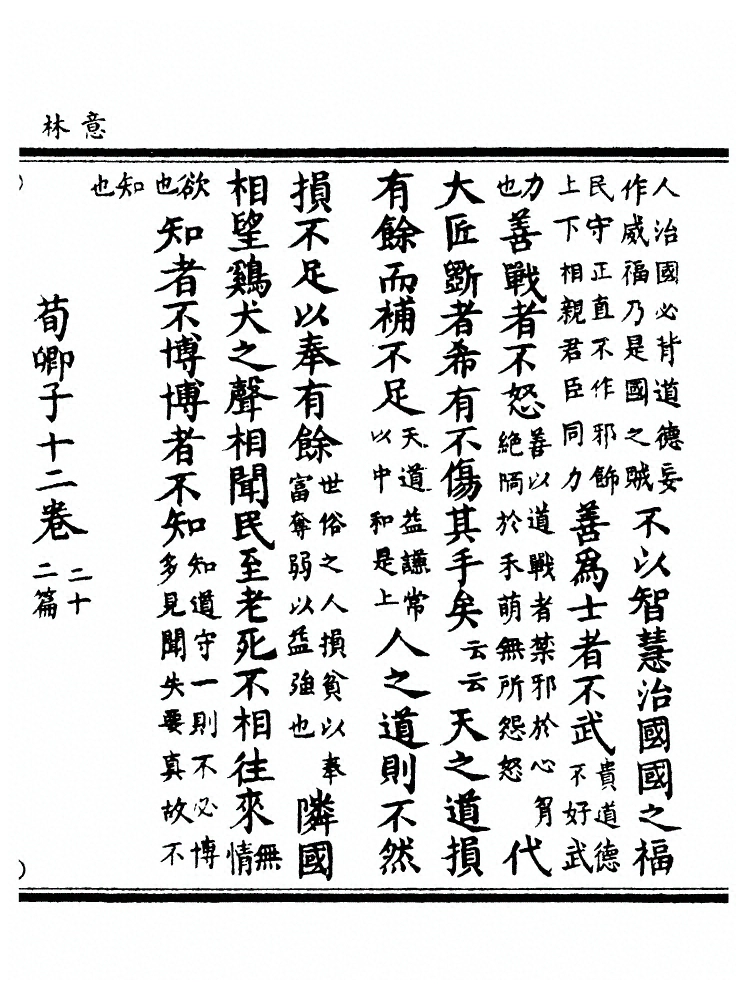 意林
人治國必背道德妄作威福乃是國之賊不以智慧治國國之福
民守正直不作邪飾上下相親君臣同力善爲士者不武貴道德不好武
力也善戰者不怒善以道戰者禁邪於心胷絶禍於未萌無所怨怒代
大匠斲者希有不傷其手矣云云天之道損
有餘而補不足天道益謙常以中和是上人之道則不然
損不足以奉有餘世俗之人損貧以奉富奪弱以益強也隣國
相望鷄犬之聲相聞民至老死不相往來無情
欲也知者不博博者不知知道守一則不必博多見聞失要真故不
知也
荀卿子十二卷二十二篇